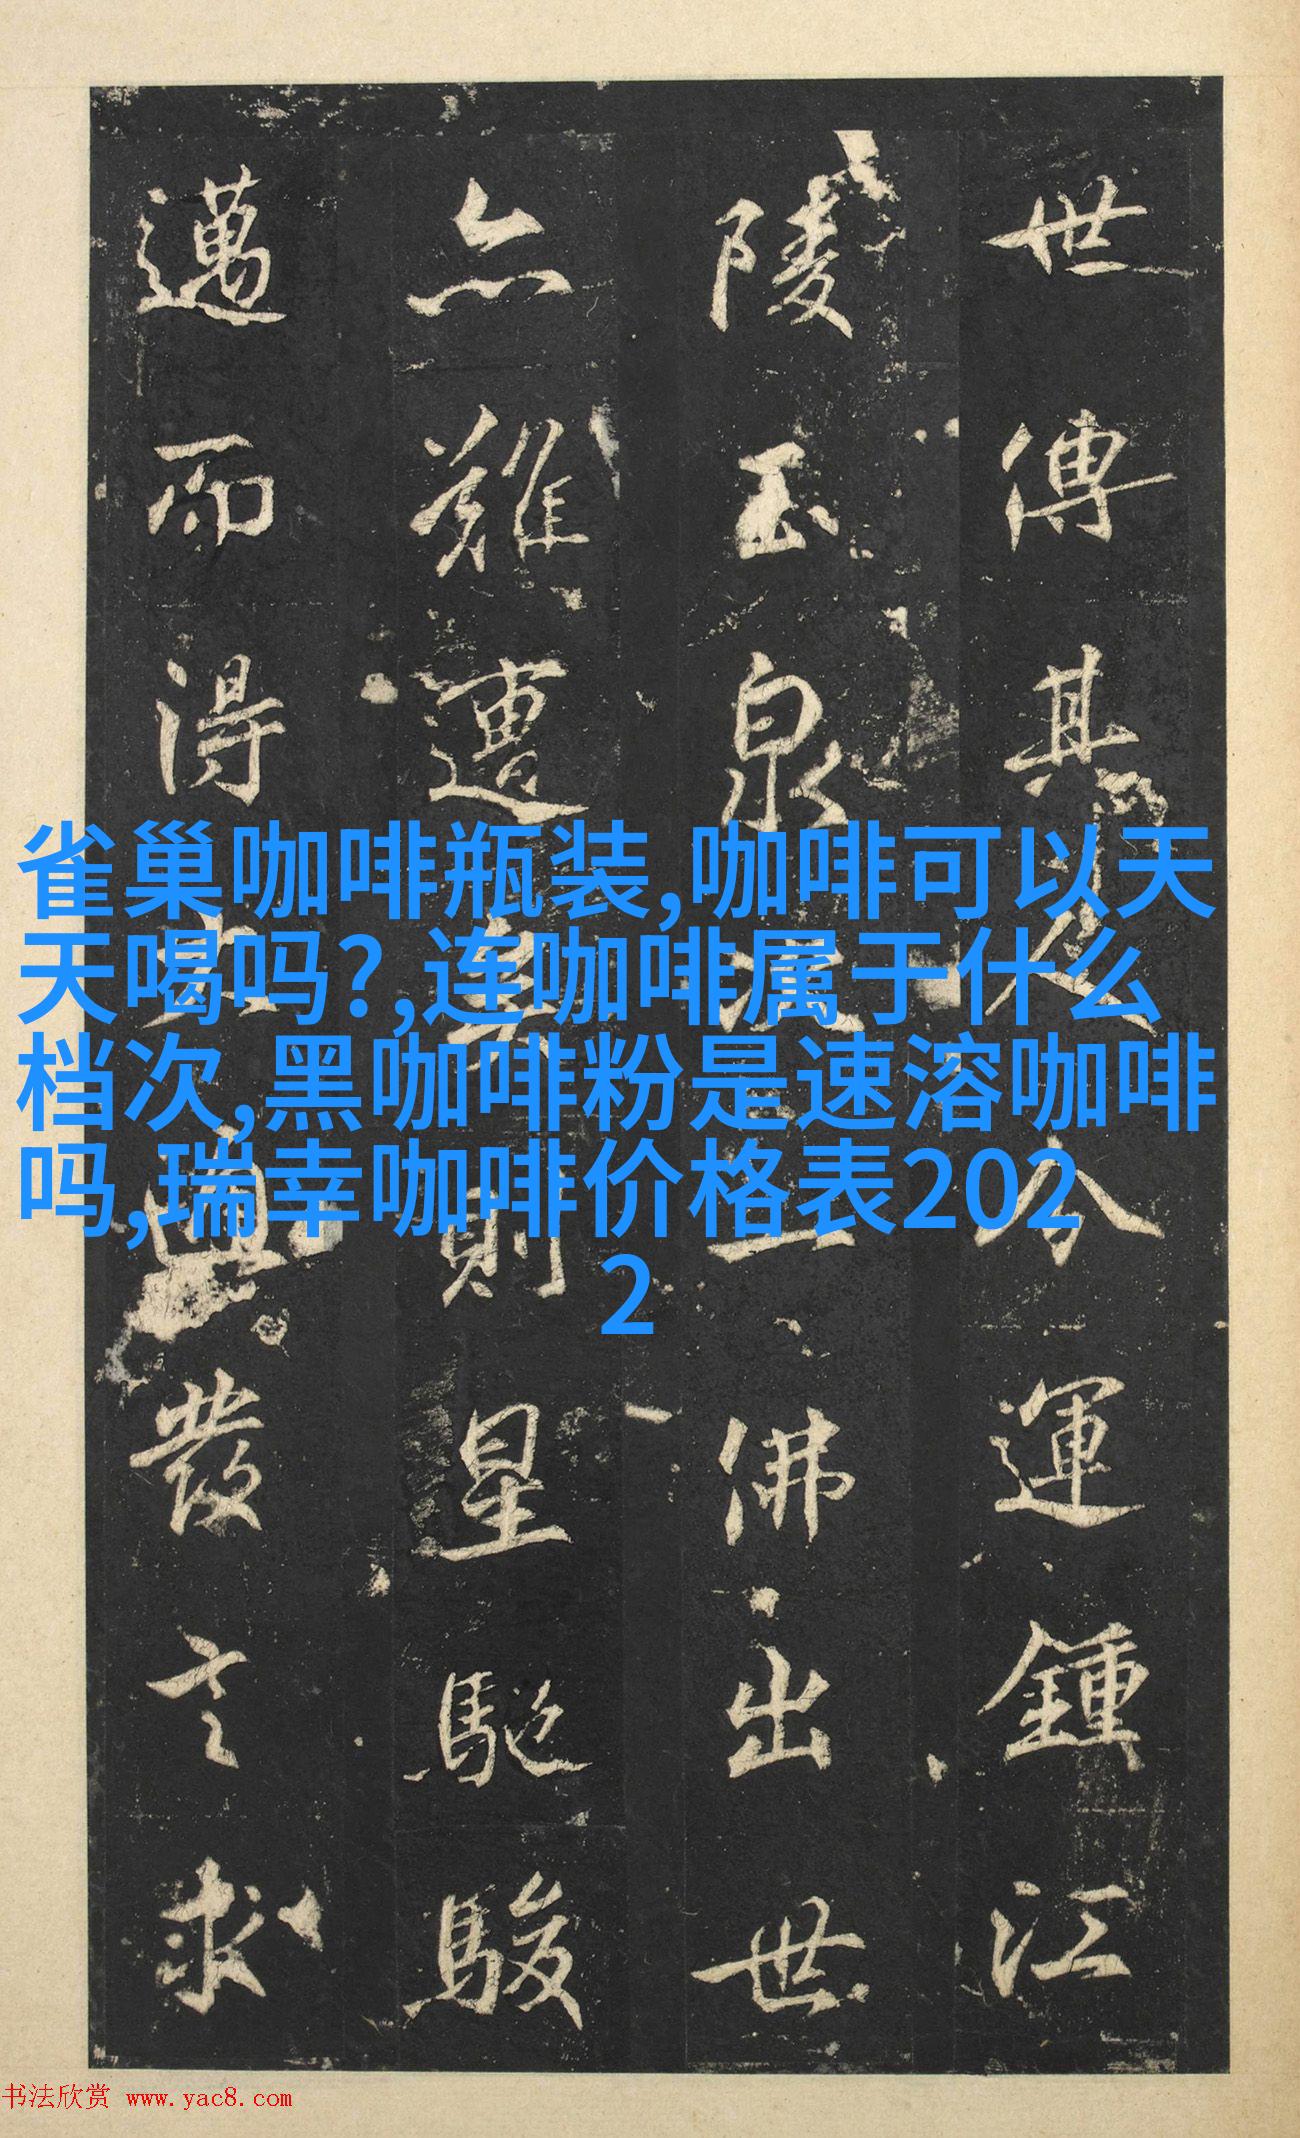 世傳其人今運鍾江
陵玉泉次佛出世
亦難遭矣則星馳駿
邁而得興發言求
雀巢咖啡瓶装,咖啡可以天
天喝吗?,连咖啡属于什么
档次,黑咖啡粉是速溶咖啡
吗,瑞幸咖啡价格表202
2
书法欣赏 www.yac8.com